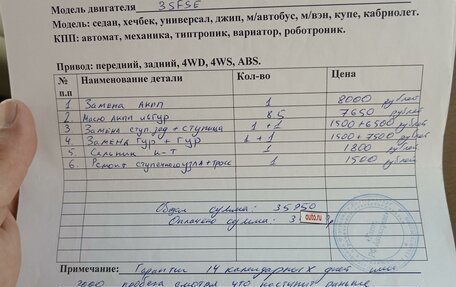 Модель двигателя 3SFSE
Модель: седан, хечбек, универсал, джип, м/автобус, м/вэн, купе, кабриолет.
КПП: автомат, механика, типтроник, вариатор, роботроник.
Привод: передний, задний, 4WD, 4WS, ABS.
№ п.п Наименование детали Кол-во Цена
1 Замена АКПП 1 8000 рублей
2 Масло АКПП 8,5 7650 рублей
3 Замена ступ. зад + ступица 1+1 1500+6500 рублей
4 Замена ГУР + ГУР 1+1 1500+7500 рублей
5 Сальник к-т 1 1800 рублей
6. Ремонт 1 1500 рублей
Общая сумма: 35950
Оплачено сумма: 3
auto.ru
Примечание: Гарантия 14 календарных дней или
пробега смотря что наступит раньше